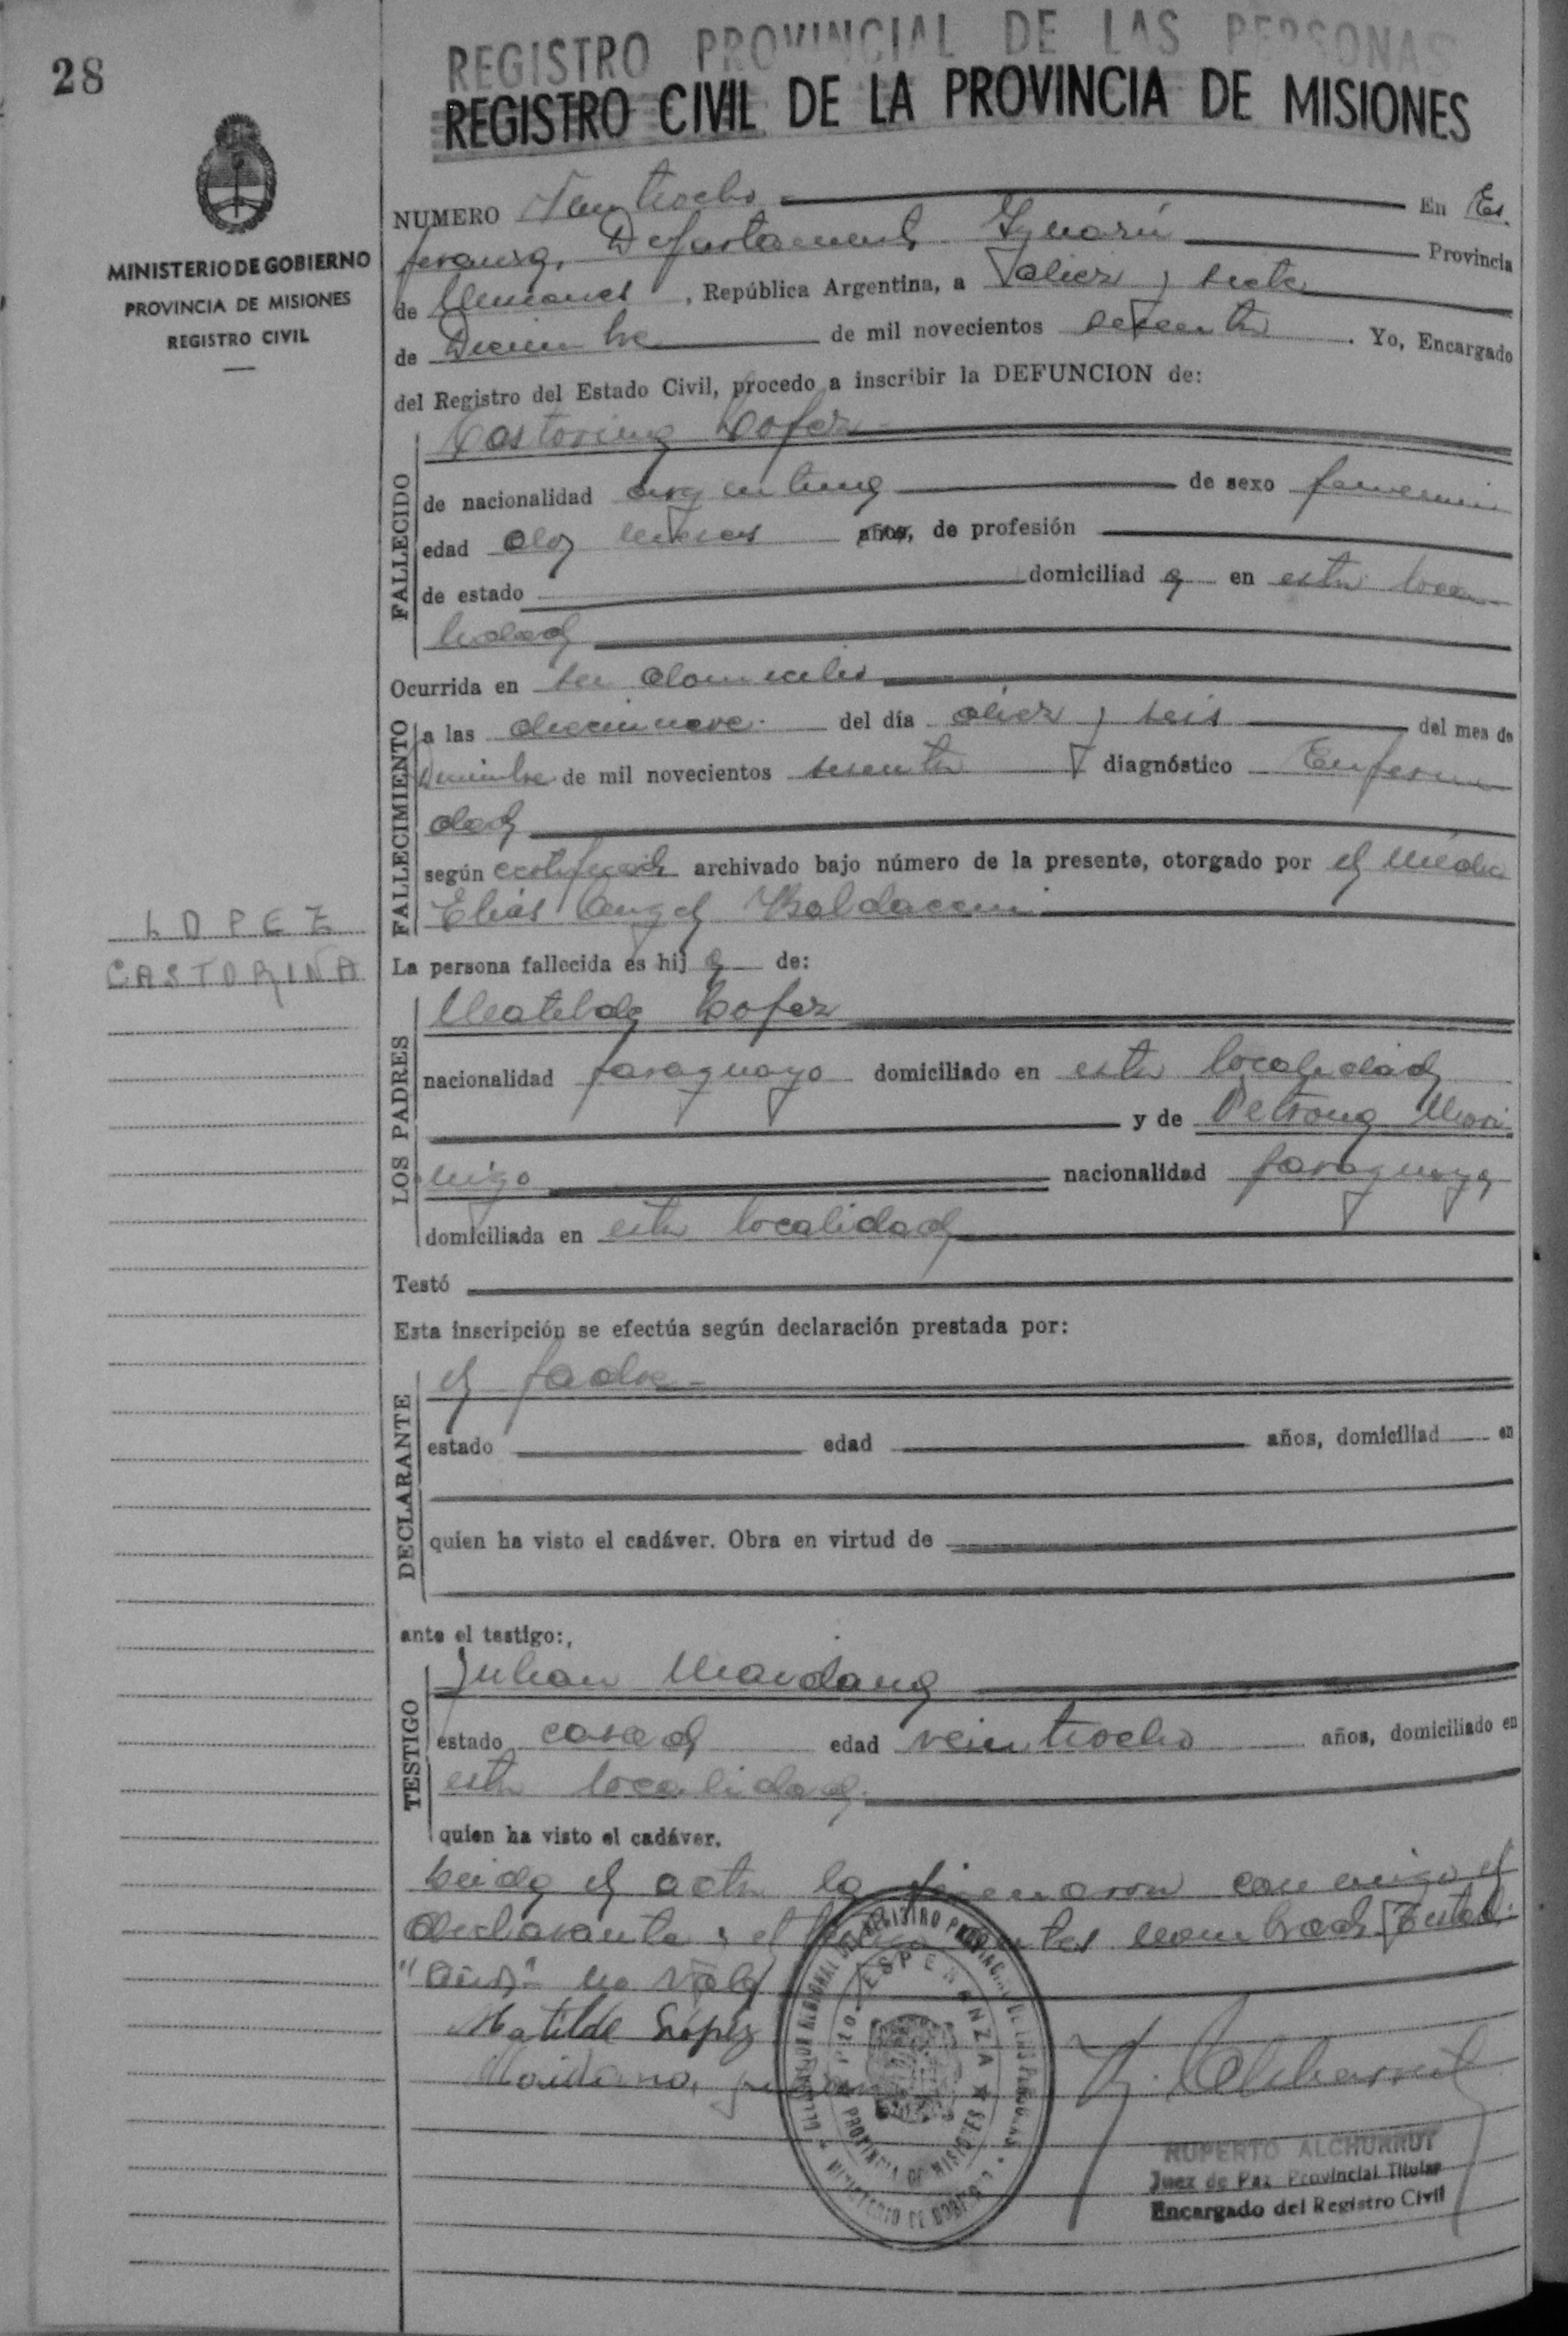 28
REGISTRO PROVINCIAL DE LAS PERSONAS
REGISTRO CIVIL DE LA PROVINCIA DE MISIONES
MINISTERIO DE GOBIERNO
PROVINCIA DE MISIONES
REGISTRO CIVIL
NUMERO Veintiocho En Es
peranza, Departamento Iguazú Provincia
de Misiones, República Argentina, a diez y siete
de Diciembre de mil novecientos sesenta. Yo, Encargado
del Registro del Estado Civil, procedo a inscribir la DEFUNCION de:
FALLECIDO
Castorina Lopez
de nacionalidad argentina de sexo femenin
edad dos meses años, de profesión
de estado domiciliad a en esta loca
lidad
Ocurrida en su domicilio
FALLECIMIENTO
a las diecinueve del día diez y seis del mes de
Diciembre de mil novecientos sesenta y diagnóstico Enferme
dad
según certificado archivado bajo número de la presente, otorgado por el Médico
Elias Angel Baldaccini
LOPEZ
CASTORINA
La persona fallecida es hij a de:
LOS PADRES
Matilde Lopez
nacionalidad paraguayo domiciliado en esta localidad
y de Petrona Mori
nigo nacionalidad paraguaya
domiciliada en esta localidad
Testó
Esta inscripción se efectúa según declaración prestada por:
DECLARANTE
el padre
estado edad años, domiciliad en
quien ha visto el cadáver. Obra en virtud de
ante el testigo:,
TESTIGO
Julian Maidana
estado casado edad veintiocho años, domiciliado en
esta localidad
quien ha visto el cadáver.
Leida el acta la firmaron conmigo el
declarante y el testigo antes nombrado Testado:
"años" no vale
Matilde López
Maidana, Julian
R. Alchurrut
DELEGACION REGIONAL DEL REGISTRO PROVINCIAL DE LAS PERSONAS
PTO. ESPERANZA
PROVINCIA DE MISIONES
MINISTERIO DE GOBIERNO
RUPERTO ALCHURRUT
Juez de Paz Provincial Titular
Encargado del Registro Civil